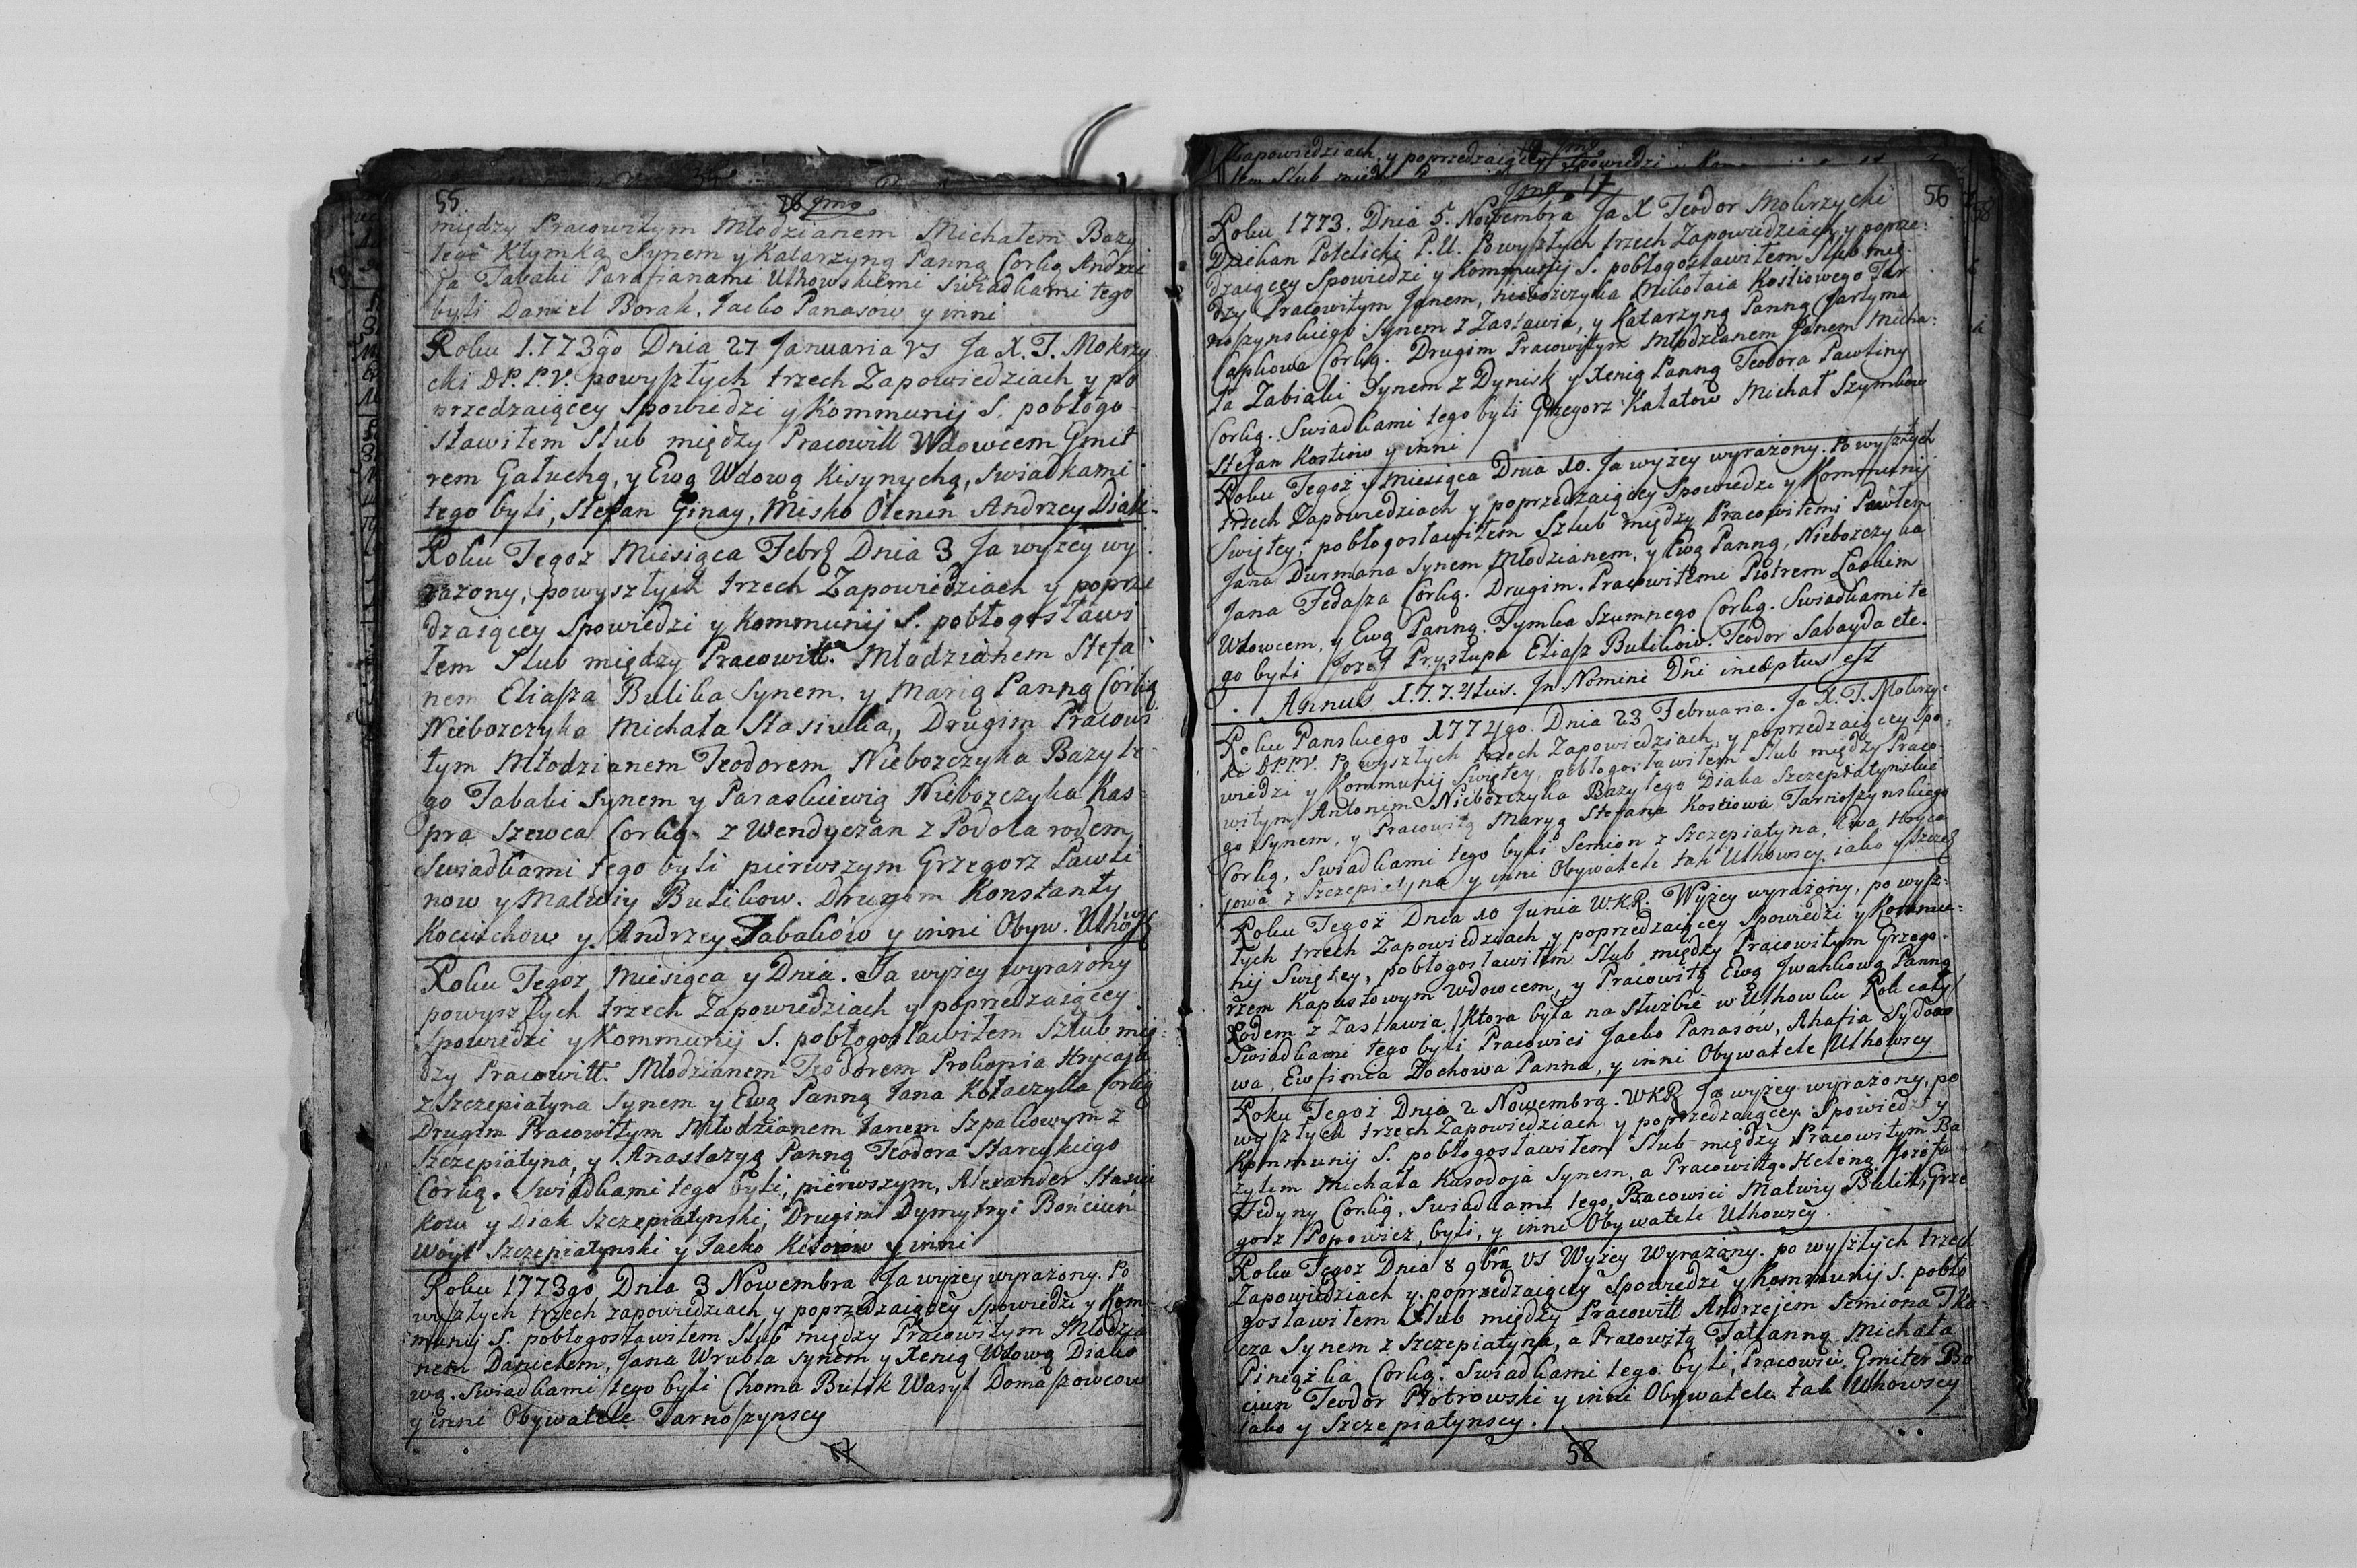 55
16
między Pracowitym Młodzianem Michałem Bazy
lego Kłymka Synem y Katarzyną Panną Corką Andrze
ja Tabaki Parafianami Uhowskiemi Swiadkami tego
byli Daniel Borak, Jacko Panasow y inni
Roku 1.773go Dnia 27 Januaria VS Ja X. T. Mokrzy
cki D P. P. V. powyszłych trzech Zapowiedziach y po
przedzaiącey Spowiedzi y Kommunij S. pobłogo
sławiłem Slub między Pracowitt Wdowcem Gmit
rem Gałuchą, y Ewą Wdową Kisynychą, swiadkami
tego byli, Stefan Ginay, Misko Olenin Andrzey Diak.
Roku Tegoz Miesiąca Febr Dnia 3 Ja wyżey wy
rażony, powyszłych trzech Zapowiedziach y poprze
dzaiącey Spowiedzi y Kommunij S. pobłogosławi
łem Slub między Pracowitt. Młodzianem Stefa
nem Eliasza Bulika Synem, y Marią Panną Corką
Nieborzczyka Michała Stasiuka, Drugim Pracowi
tym Młodzianem Teodorem Nieborzczyka Bazyle
go Tabaki Synem y Paraskiewią Nieborzczyka Kas
pra Szewca Corką z Wendyczan z Podola rodem
Swiadkami tego byli pierwszym Grzegorz Pawli
now y Matwiy Bulikow. Drugim Konstanty
Kociuchow y Andrzey Tabaków y inni Obyw. Uhows
Roku Tegoz Miesiąca y Dnia. Ja wyżey wyrażony
powyszłych trzech Zapowiedziach y poprzedzaiącey
Spowiedzi y Kommunij S. pobłogosławiłem Szlub mię
dzy Pracowitt. Młodzianem Teodorem Prokopia Hrycaja
z Szczepiatyna Synem y Ewą Panną Jana Kołaczyka Corką
Drugim Pracowitym Młodzianem Janem Szpakowym z
Szczepiatyna, y Anastazyą Panną Teodora Staruckiego
Corką. Swiadkami tego byli, pierwszym, Alexander Stasiu
kow y Diak Szczepiatynski, Drugim Dymytryi Bonciun
Woyt Szczepiatynski y Jacko Kitorow y inni
Roku 1773go Dnia 3 Nowembra Ja wyżey wyrażony. Po
wyszłych trzech zapowiedziach y poprzedzaiącey Spowiedzi y Kom
munij S. pobłogosławiłem Slub między Pracowitym Młodzia
nem Danielem, Jana Wrubla synem y Xenią Wdową Diako
wą. Swiadkami tego byli Choma Bulik Wasyl Domaszowcow
y inni Obywatele Tarnoszynscy
57
Zapowiedziach, y poprzedzaiącey Spowiedzi
17
56
Roku 1773. Dnia 5. Nowembra Ja X Teodor Mokrzycki
Dziekan Potelicki P. U. Powyszłych trzech Zapowiedziach y poprze:
dzaiącey Spowiedzi y Kommunij S. pobłogosławiłem Slub mię
dzy Pracowitym Janem, nieboszczyka Mikołaia Kostiowego Tar
noszynskiego Synem z Zastawia, y Katarzyną Panną Jartyma
Capkowa Corką. Drugim Pracowitym Młodzianem Janem Micha:
ła Zabiaki Synem z Dynisk y Xenią Panną Teodora Pawliny
Corką. Swiadkami tego byli Grzegorz Kałatow Michał Szymkow
Stefan Kostiow y inni
Roku Tegoż y Miesiąca Dnia 10. Ja wyżey wyrażony. Powyszłych
trzech Zapowiedziach y poprzedzaiącey Spowiedzi y Kommunij
Swiętey, pobłogosławiłem Szlub między Pracowitemi Pawłem
Jana Durmana Synem Młodzianem, y Ewą Panną, Nieboszczyka
Jana Fedasza Corką. Drugim. Pracowitemi Piotrem Lackim
Wdowcem, y Ewą Panną. Tymka Szumnego Corką. Swiadkami te
go byli Jozef Prystupa Eliasz Bulikow. Teodor Sabayda etc.
Annus 1.7.7.4tus. In Nomini Dni inceptus est
Roku Panskiego 1774go. Dnia 23 Februaria. Ja X. T. Mokrzyc
ki D P.P.V. Powyszłych trzech Zapowiedziach, y poprzedzaiącey Spo:
wiedzi y Kommunij Swiętey, pobłogosławiłem Slub między Praco
witym Antonim Nieboszczyka Bazylego Diaka Szczepiatynskie
go Synem, y Pracowitą Maryą Stefana Kostiowa Tarnoszynskiego
Corką, Swiadkami tego byli Semion z Szczepiatyna, Ewa Hryca
iowa z Szczepiatyna y inni Obywatele tak Uhowscy iako y Szcze
Roku Tegoż Dnia 10 Junia W.K.R. Wyżey wyrażony, po wysz:
łych trzech Zapowiedziach y poprzedzaiącey Spowiedzi y Kommu:
nij Swiętey, pobłogosławiłem Slub między Pracowitym Grzego
rzem Kapustowym Wdowcem, y Pracowitą Ewą Jwankową Panną
Rodem z Zastawia, Ktora była na Służbie w Uhowku Rok cały
Swiadkami tego byli Pracowici Jacko Panasów, Ahafia Sydoro
wa, Ewfimca Dochowa Panna, y inni Obywatele Uhowscy
Roku Tegoż Dnia 2 Nowembra. WKR Ja wyżey wyrażony, po
wyszłych trzech Zapowiedziach y poprzedzaiącey Spowiedzi y
Kommunij S. pobłogosławiłem Slub między Pracowitym Ba
zylim Michała Kusodoja Synem, a Pracowitą Heleną Jozefa
Fedyny Corką, Swiadkami tego, Pracowici Matwiy Bulik, Grze
gorz Popowicz, byli, y inni Obywatele Uhowscy.
Roku Tegoz Dnia 8 9bra VS Wyżey Wyrażony. po wyszłych trzech
Zapowiedziach y poprzedzaiącey Spowiedzi y Kommunij S. pobło
gosławiłem Slub między Pracowitt Andrzejem Semiona Tka
cza Synem z Szczepiatyna, a Pracowitą Tatianną Michała
Piniążka Corką. Swiadkami tego byli, Pracowici Gmiter Bo
ciun Teodor Piotrowski y inni Obywatele tak Uhowscy
iako y Szczepiatynscy.
58